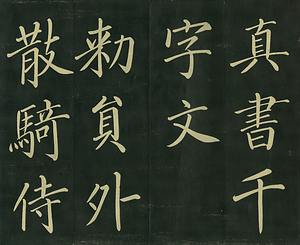 真書千
字文
勑貟外
散騎侍